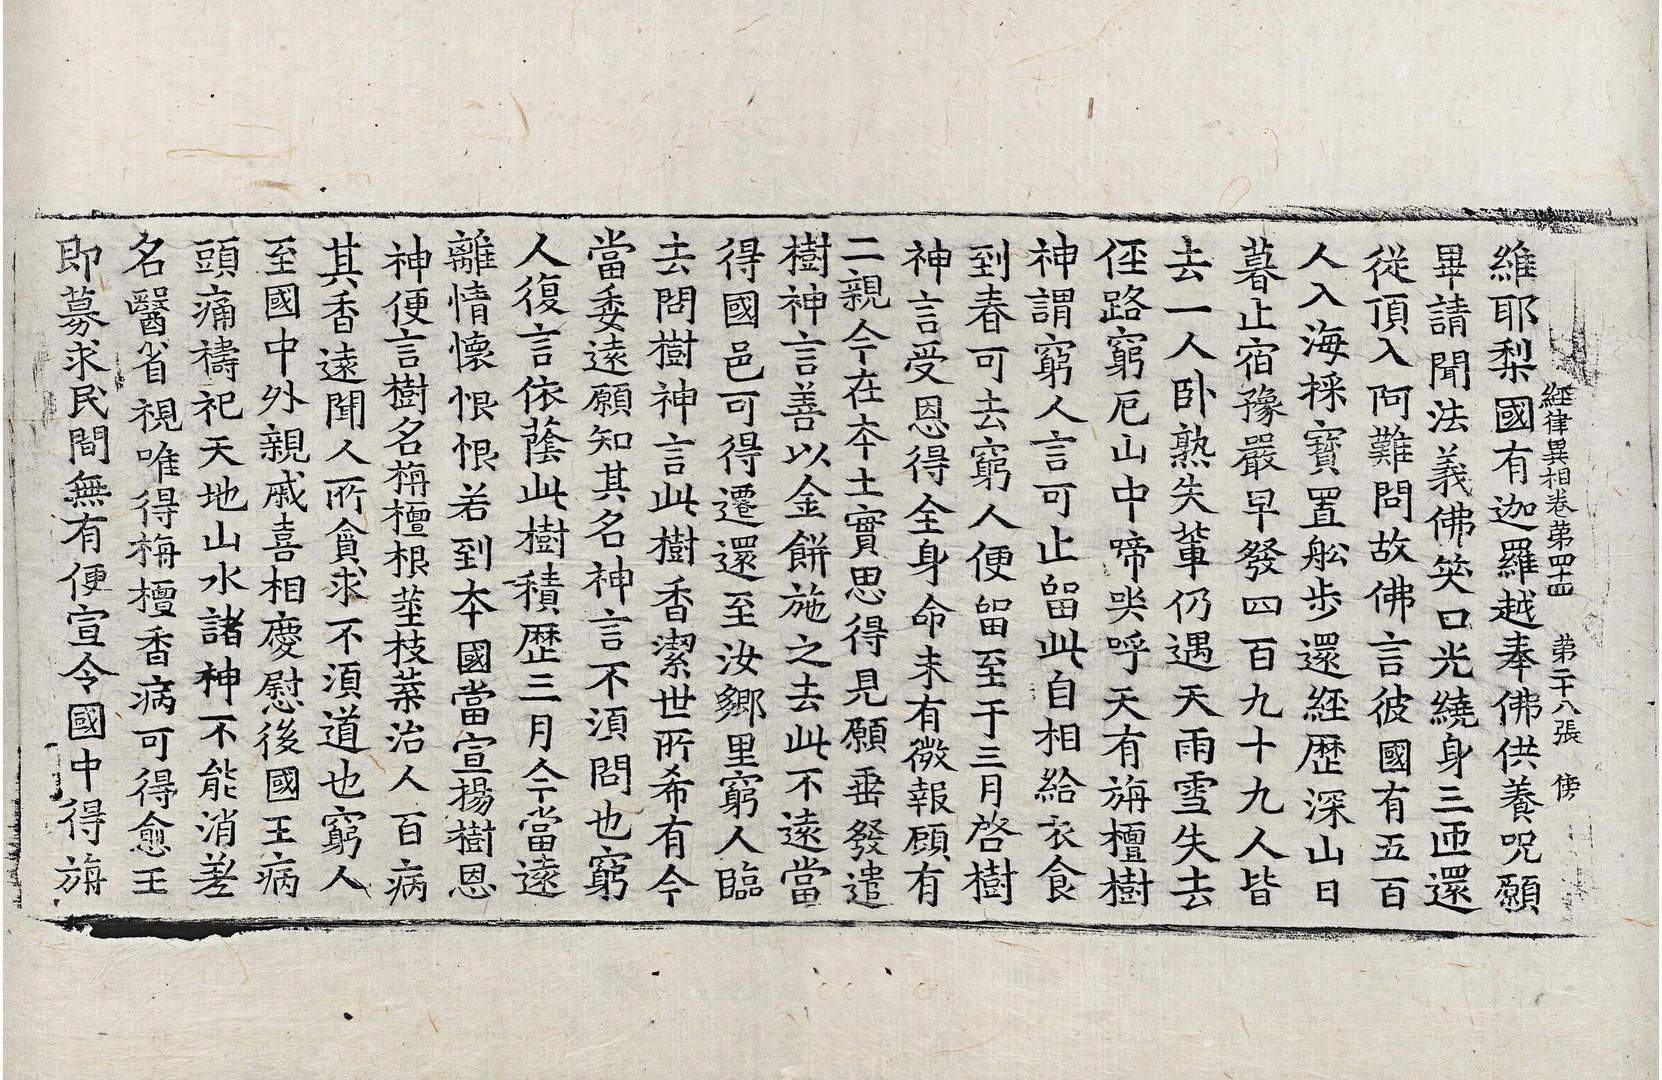 經律異相卷第四十四 第二十八張 傍
維耶梨國有迦羅越奉佛供養呪願
畢請聞法義佛笑口光繞身三匝還
從頂入阿難問故佛言彼國有五百
人入海採寶置舩步還經歷深山日
暮止宿豫嚴早發四百九十九人皆
去一人卧熟失輩仍遇天雨雪失去
侄路窮厄山中啼哭呼天有旃檀樹
神謂窮人言可止留此自相給衣食
到春可去窮人便留至于三月啓樹
神言受恩得全身命未有微報顧有
二親今在本土實思得見願垂發遣
樹神言善以金餅施之去此不遠當
得國邑可得還還至汝鄉里窮人臨
去問樹神言此樹香潔世所希有今
當委遠願知其名神言不須問也窮
人復言依蔭此樹積歷三月今當遠
離情懷恨恨若到本國當宣揚樹恩
神便言樹名栴檀根莖枝葉治人百病
其香遠聞人所貪求不須道也窮人
至國中外親戚喜相慶慰後國王病
頭痛禱祀天地山水諸神不能消差
名醫省視唯得栴檀香病可得愈王
即募求民間無有便宣令國中得旃